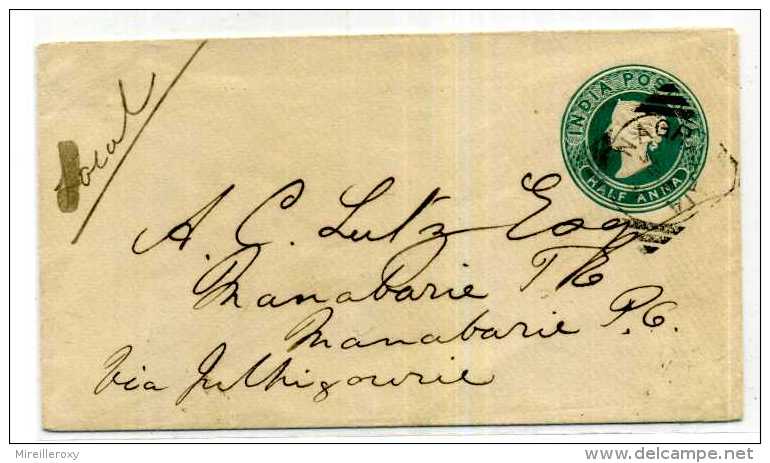 Local
INDIA POSTAGE
HALF ANNA
NAGR
A. C. Lutz Esq
Manabarie T E
Manabarie P.O.
Via Julhigourie
Mireilleroxy
delcampe.net